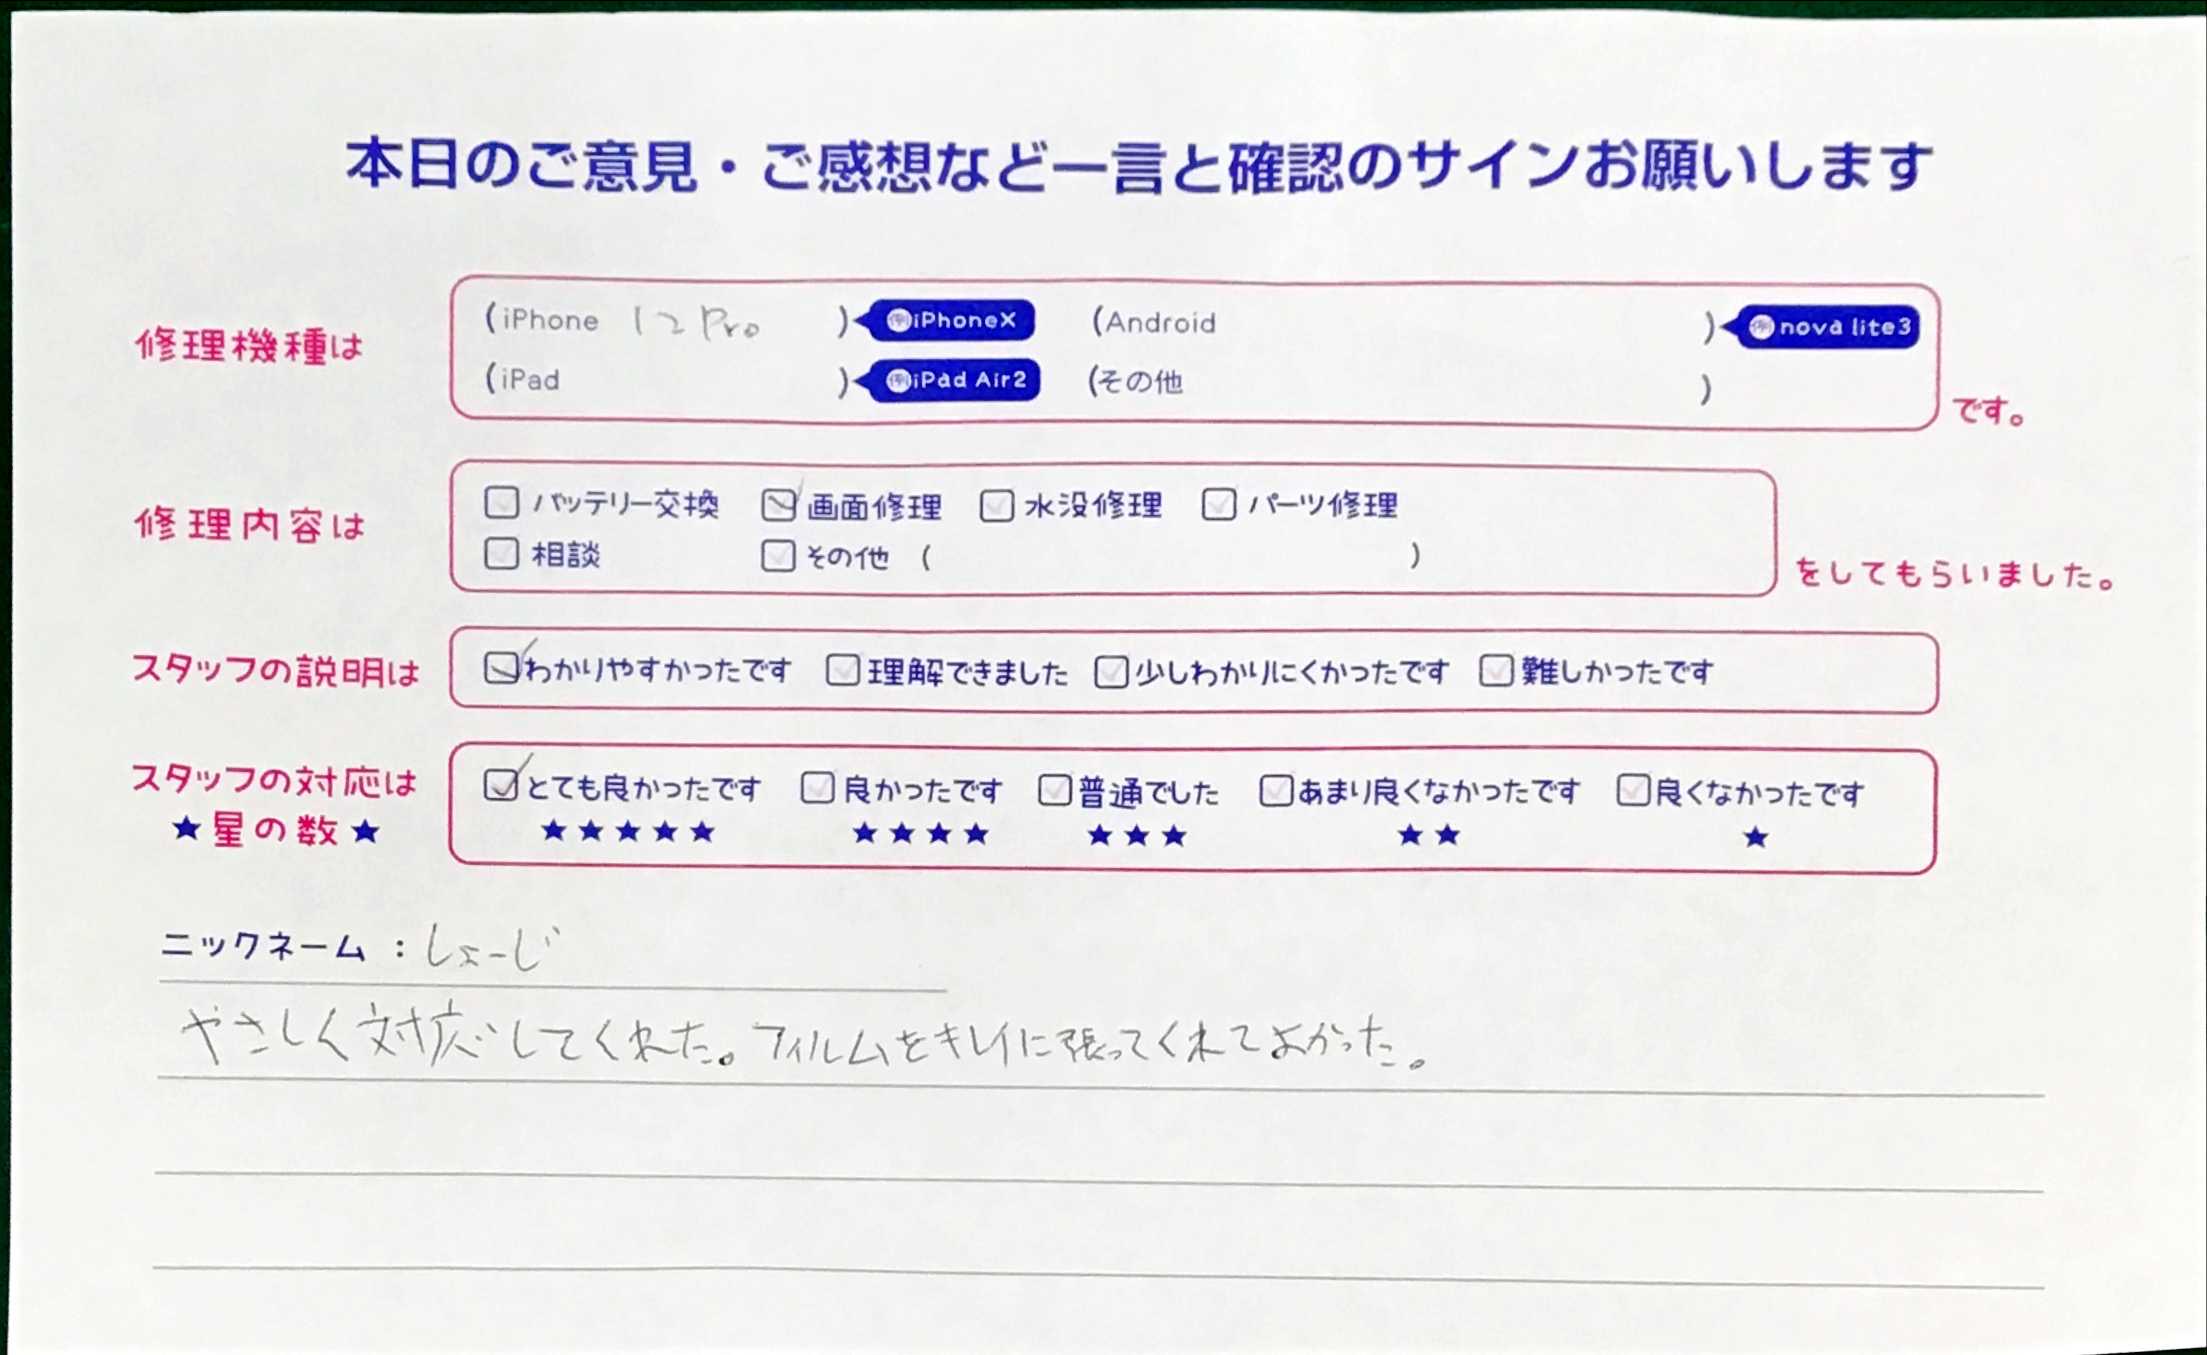 本日のご意見・ご感想など一言と確認のサインお願いします
修理機種は (iPhone 12 Pro ) 例iPhoneX (Android ) 例nova lite3
(iPad ) 例iPad Air2 (その他 ) です。
修理内容は バッテリー交換 画面修理 水没修理 パーツ修理
相談 その他 ( ) をしてもらいました。
スタッフの説明は わかりやすかったです 理解できました 少しわかりにくかったです 難しかったです
スタッフの対応は とても良かったです 良かったです 普通でした あまり良くなかったです 良くなかったです
★星の数★ ★★★★★ ★★★★ ★★★ ★★ ★
ニックネーム：しょーじ
やさしく対応してくれた。フィルムをキレイに張ってくれてよかった。